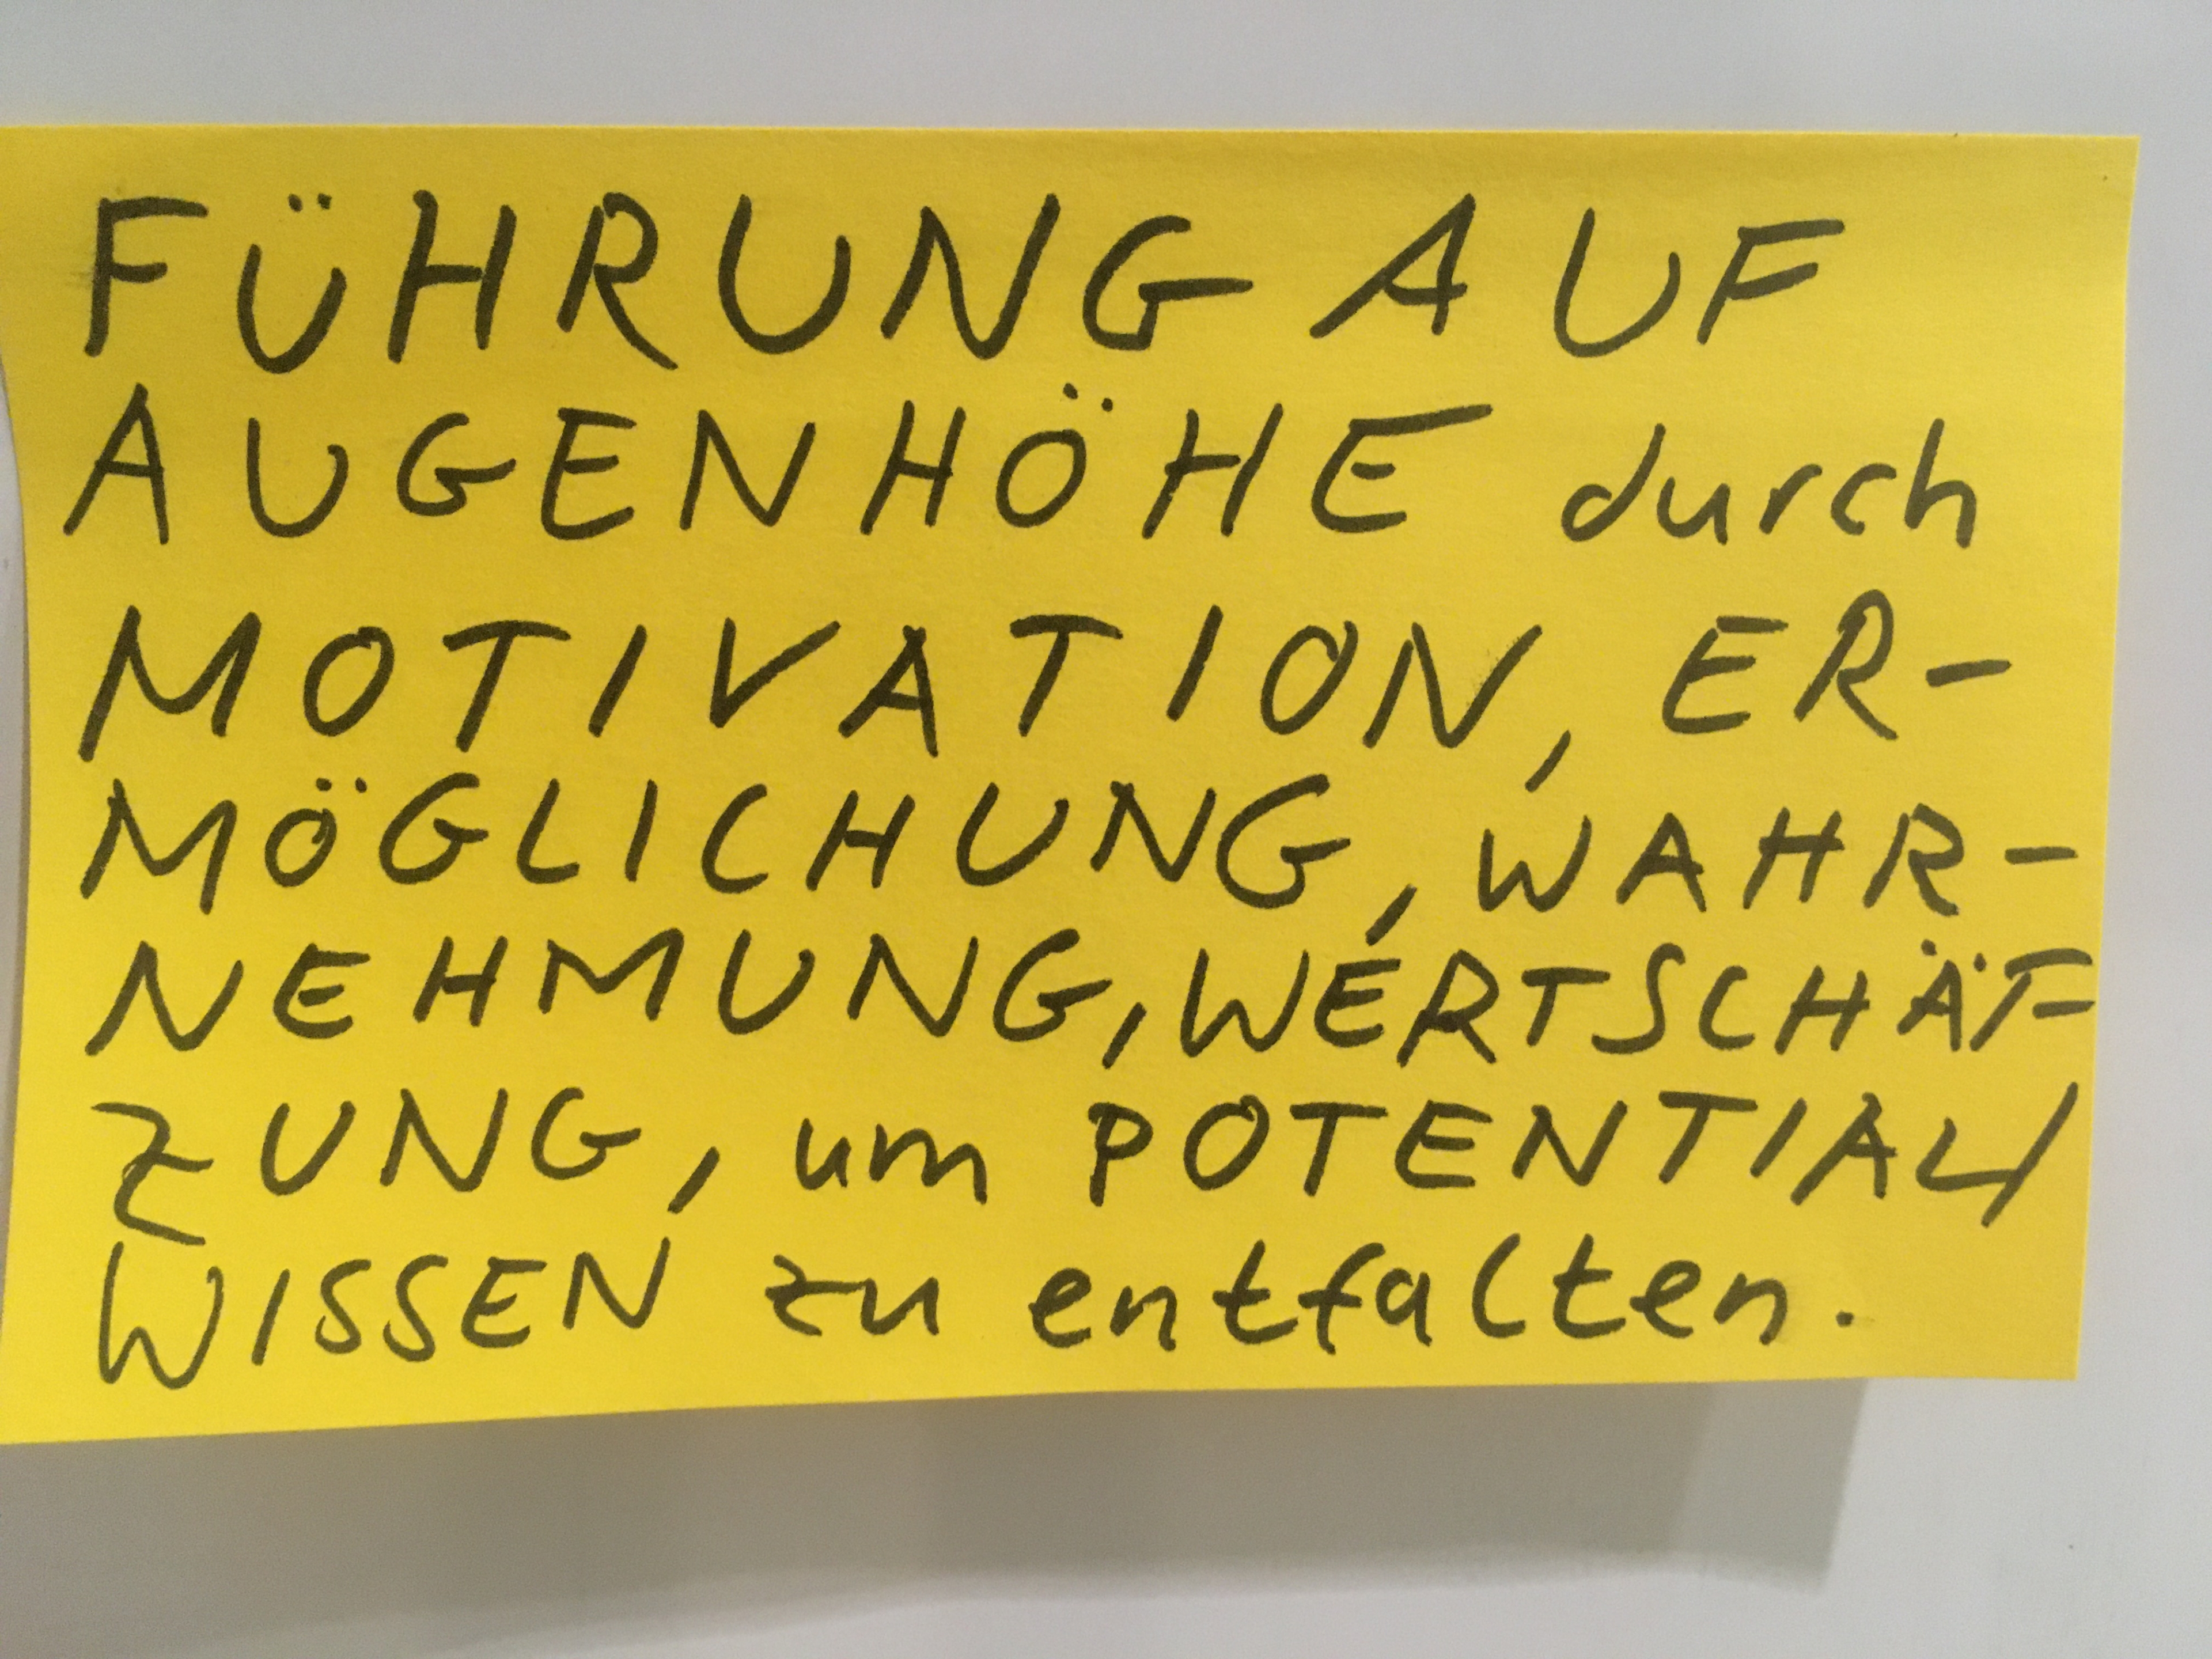 FÜHRUNG AUF
AUGENHÖHE durch
MOTIVATION, ER-
MÖGLICHUNG, WAHR-
NEHMUNG, WERTSCHÄT-
ZUNG, um POTENTIAL/
WISSEN zu entfalten.